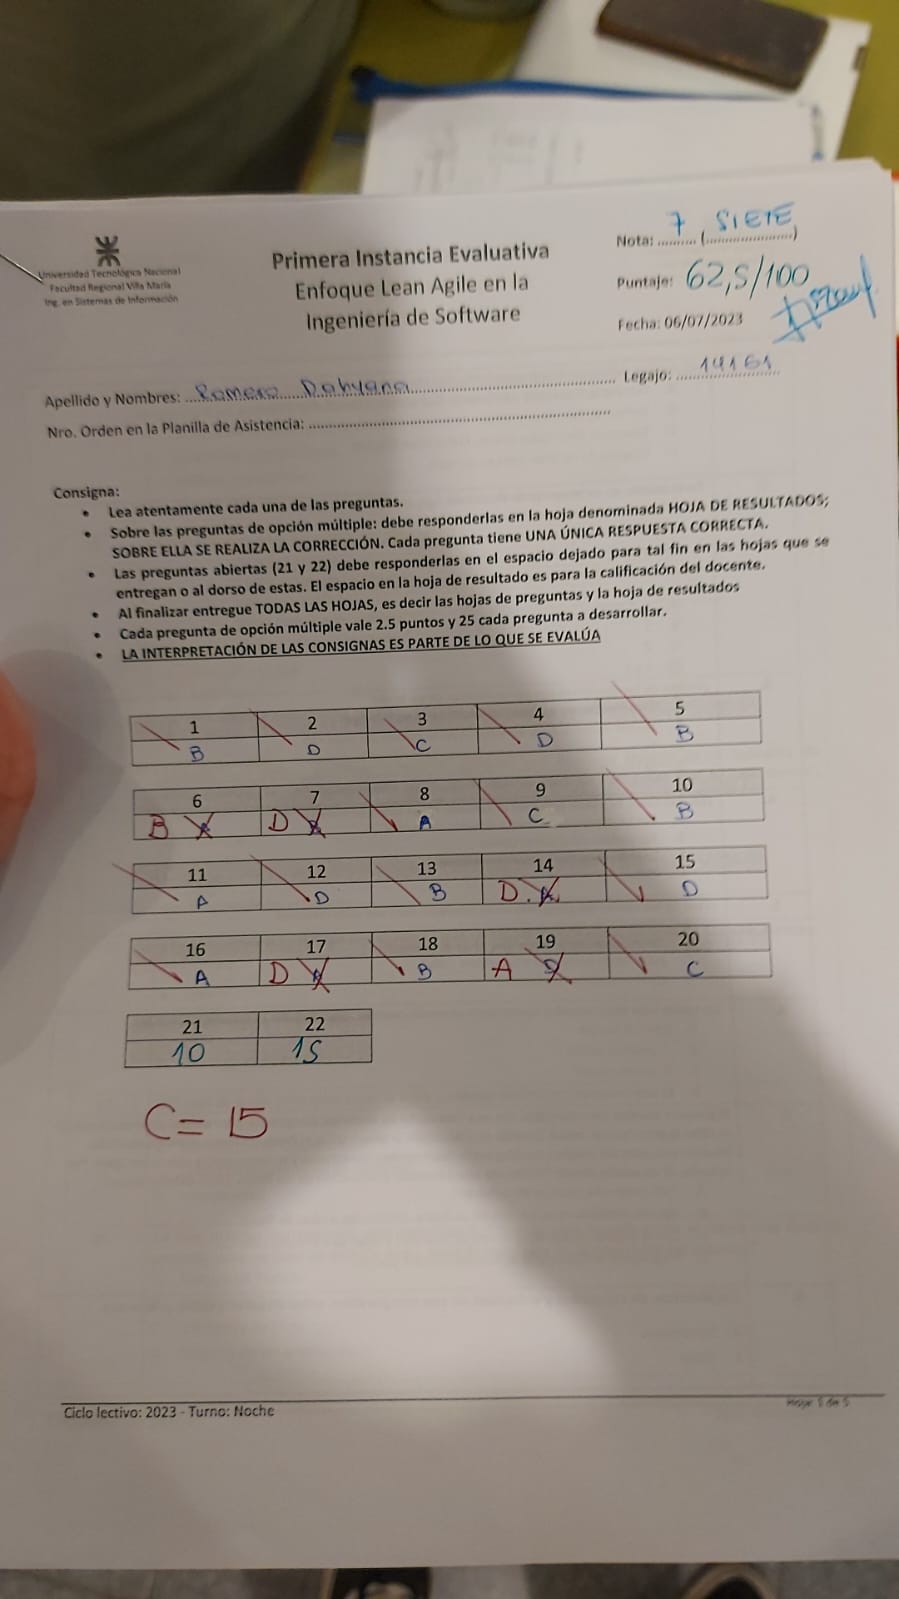 Universidad Tecnológica Nacional
Facultad Regional Villa María
Ing. en Sistemas de Información
Primera Instancia Evaluativa
Enfoque Lean Agile en la
Ingeniería de Software
Nota: 7 (SIETE)
Puntaje: 62,5/100
Fecha: 06/07/2023
Apellido y Nombres: Romero Dahyana Legajo: 14161
Nro. Orden en la Planilla de Asistencia:
Consigna:
• Lea atentamente cada una de las preguntas.
• Sobre las preguntas de opción múltiple: debe responderlas en la hoja denominada HOJA DE RESULTADOS;
SOBRE ELLA SE REALIZA LA CORRECCIÓN. Cada pregunta tiene UNA ÚNICA RESPUESTA CORRECTA.
• Las preguntas abiertas (21 y 22) debe responderlas en el espacio dejado para tal fin en las hojas que se
entregan o al dorso de estas. El espacio en la hoja de resultado es para la calificación del docente.
• Al finalizar entregue TODAS LAS HOJAS, es decir las hojas de preguntas y la hoja de resultados
• Cada pregunta de opción múltiple vale 2.5 puntos y 25 cada pregunta a desarrollar.
• LA INTERPRETACIÓN DE LAS CONSIGNAS ES PARTE DE LO QUE SE EVALÚA
1 2 3 4 5
B D C D B
6 7 8 9 10
B D A C B
11 12 13 14 15
A D B D. D
16 17 18 19 20
A D B A C
21 22
10 15
C= 15
Ciclo lectivo: 2023 - Turno: Noche
Hoja: 5 de 5